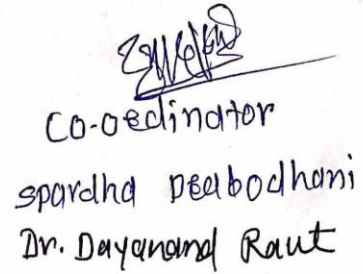 Co-ordinator
spardha prabodhani
Dr. Dayanand Raut